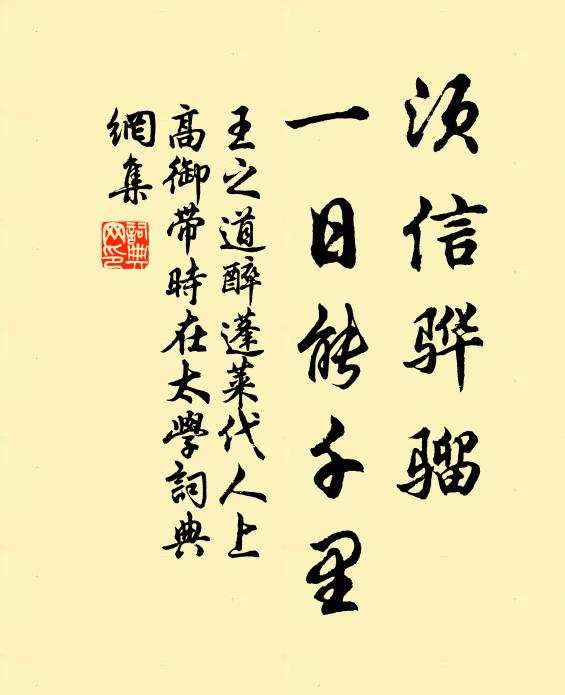 须信骅骝
一日能千里
王之道醉蓬莱代人上
高御带時在太學詞典
網集
詞典網印